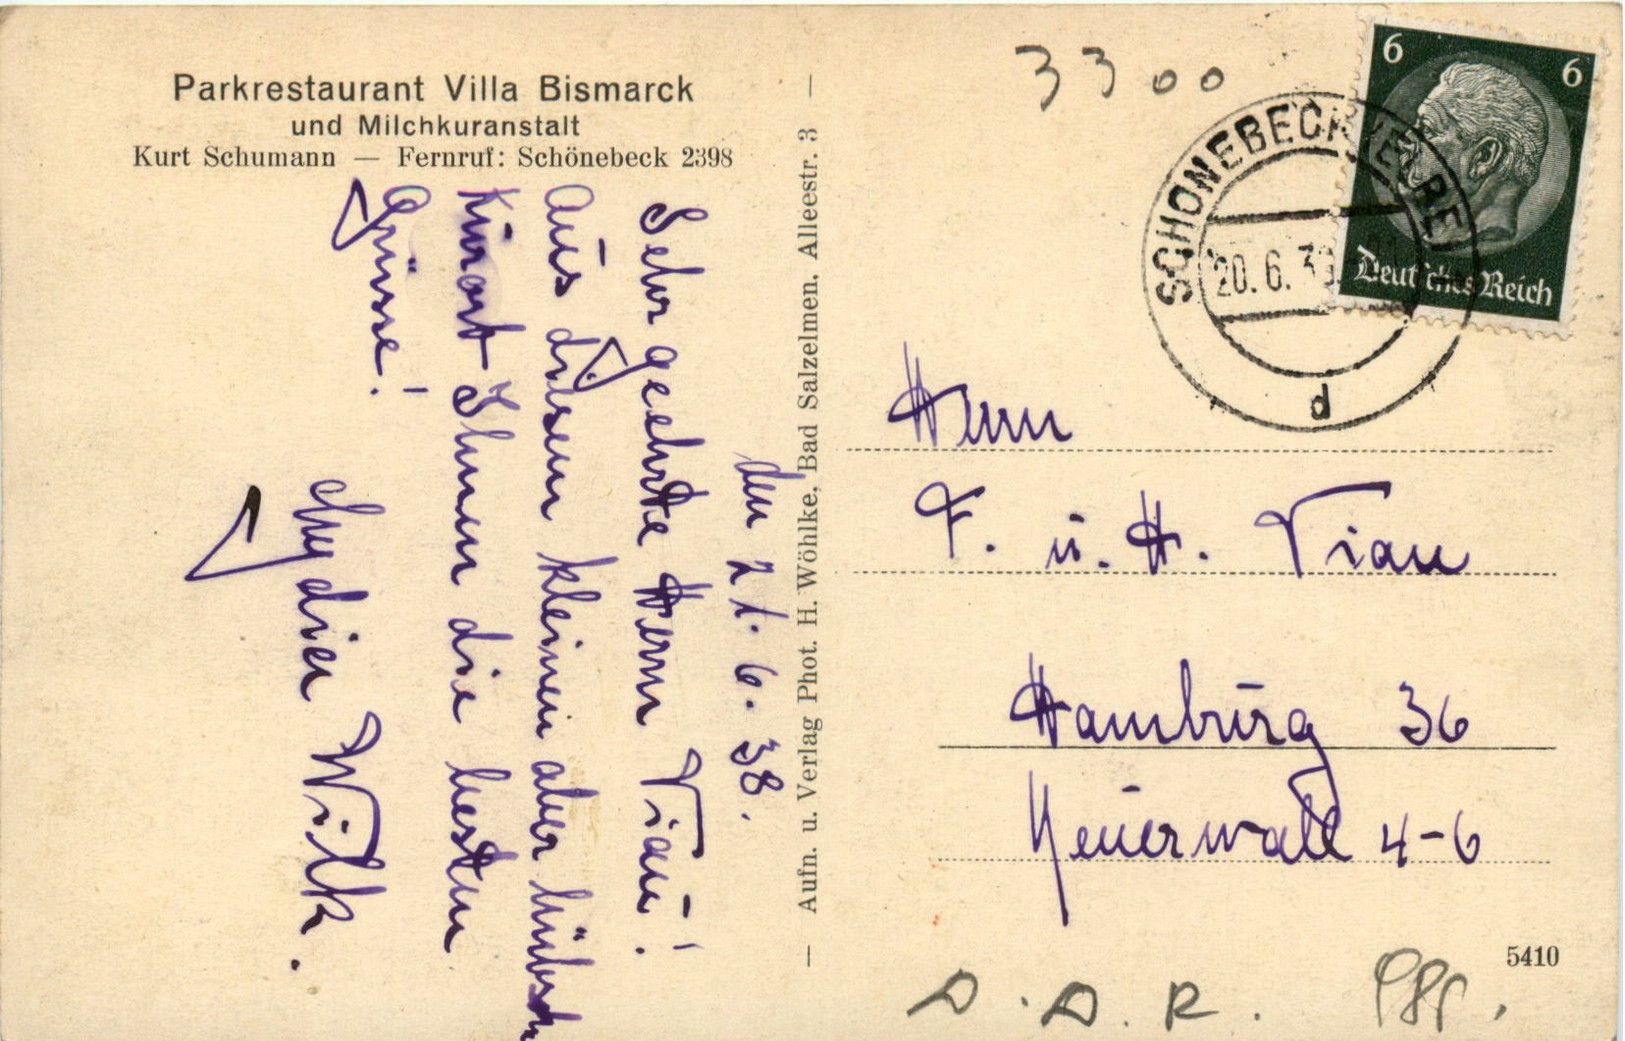 Parkrestaurant Villa Bismarck
und Milchkuranstalt
Kurt Schumann — Fernruf: Schönebeck 2398
den 21. 6. 38.
Sehr geehrte Herrn Viau!
Aus diesem kleinen aber hübschen
Kurort Ihnen die besten
Grüsse!
Wilk.
— Aufn. u. Verlag Phot. H. Wöhlke, Bad Salzelmen, Alleestr. 3 —
3300
6 6
Deutsches Reich
SCHÖNEBECK (ELBE)
20. 6. 38
d
Herrn
F. u. H. Viau
Hamburg 36
Neuerwall 4-6
5410
D. D. R.